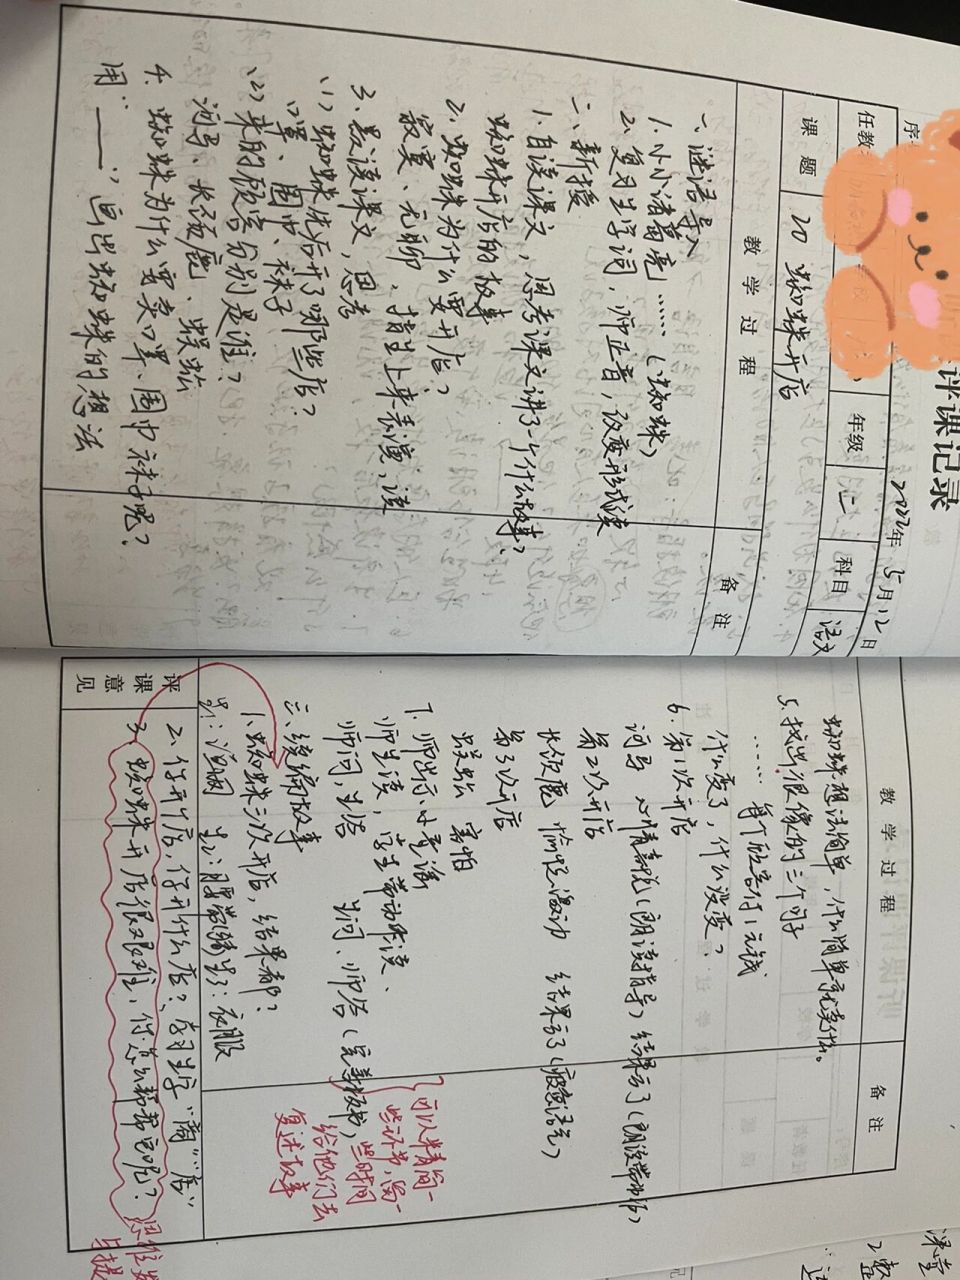 评课记录
2022年5月12日
序
任教
年级 二
科目 语文
课题 20 蜘蛛开店
教学过程
备注
一、谜语导入
1. 小小诸葛亮……（蜘蛛）
2. 复习生字词，师正音，
二、新授
1. 自读课文，思考课文讲了一个什么故事？
蜘蛛开店的故事
2. 蜘蛛为什么要开店？
寂寞、无聊，指生上来表演，读
3. 默读课文，思考
(1) 蜘蛛先后开了哪些店？
口罩、围巾、袜子
(2) 来的顾客分别是谁？
河马、长颈鹿、蜈蚣
4. 蜘蛛为什么要卖口罩、围巾、袜子呢？
用“——”画出蜘蛛的想法
教学过程
备注
蜘蛛想法简单，什么简单就卖什么。
5. 找出很像的三个句子
…… 每位顾客付1元钱
什么变了，什么没变？
6. 第1次开店
河马 心情（朗读指导）结果
第2次开店
长颈鹿 激动 结果
第3次开店
蜈蚣 害怕
7. 师出示小
师生读，学生带动作读、
师问，生答 生问、师答（完善板书）
可以精简一
些环节，留一
些时间
给他们去
复述故事
三、续编故事
1. 蜘蛛三次开店，结果都？
评课意见
2. 你开店，你开什么店？学习生字“商”“店”
3. 蜘蛛开店很艰难，你怎么帮帮它呢？
思维
与提
课堂